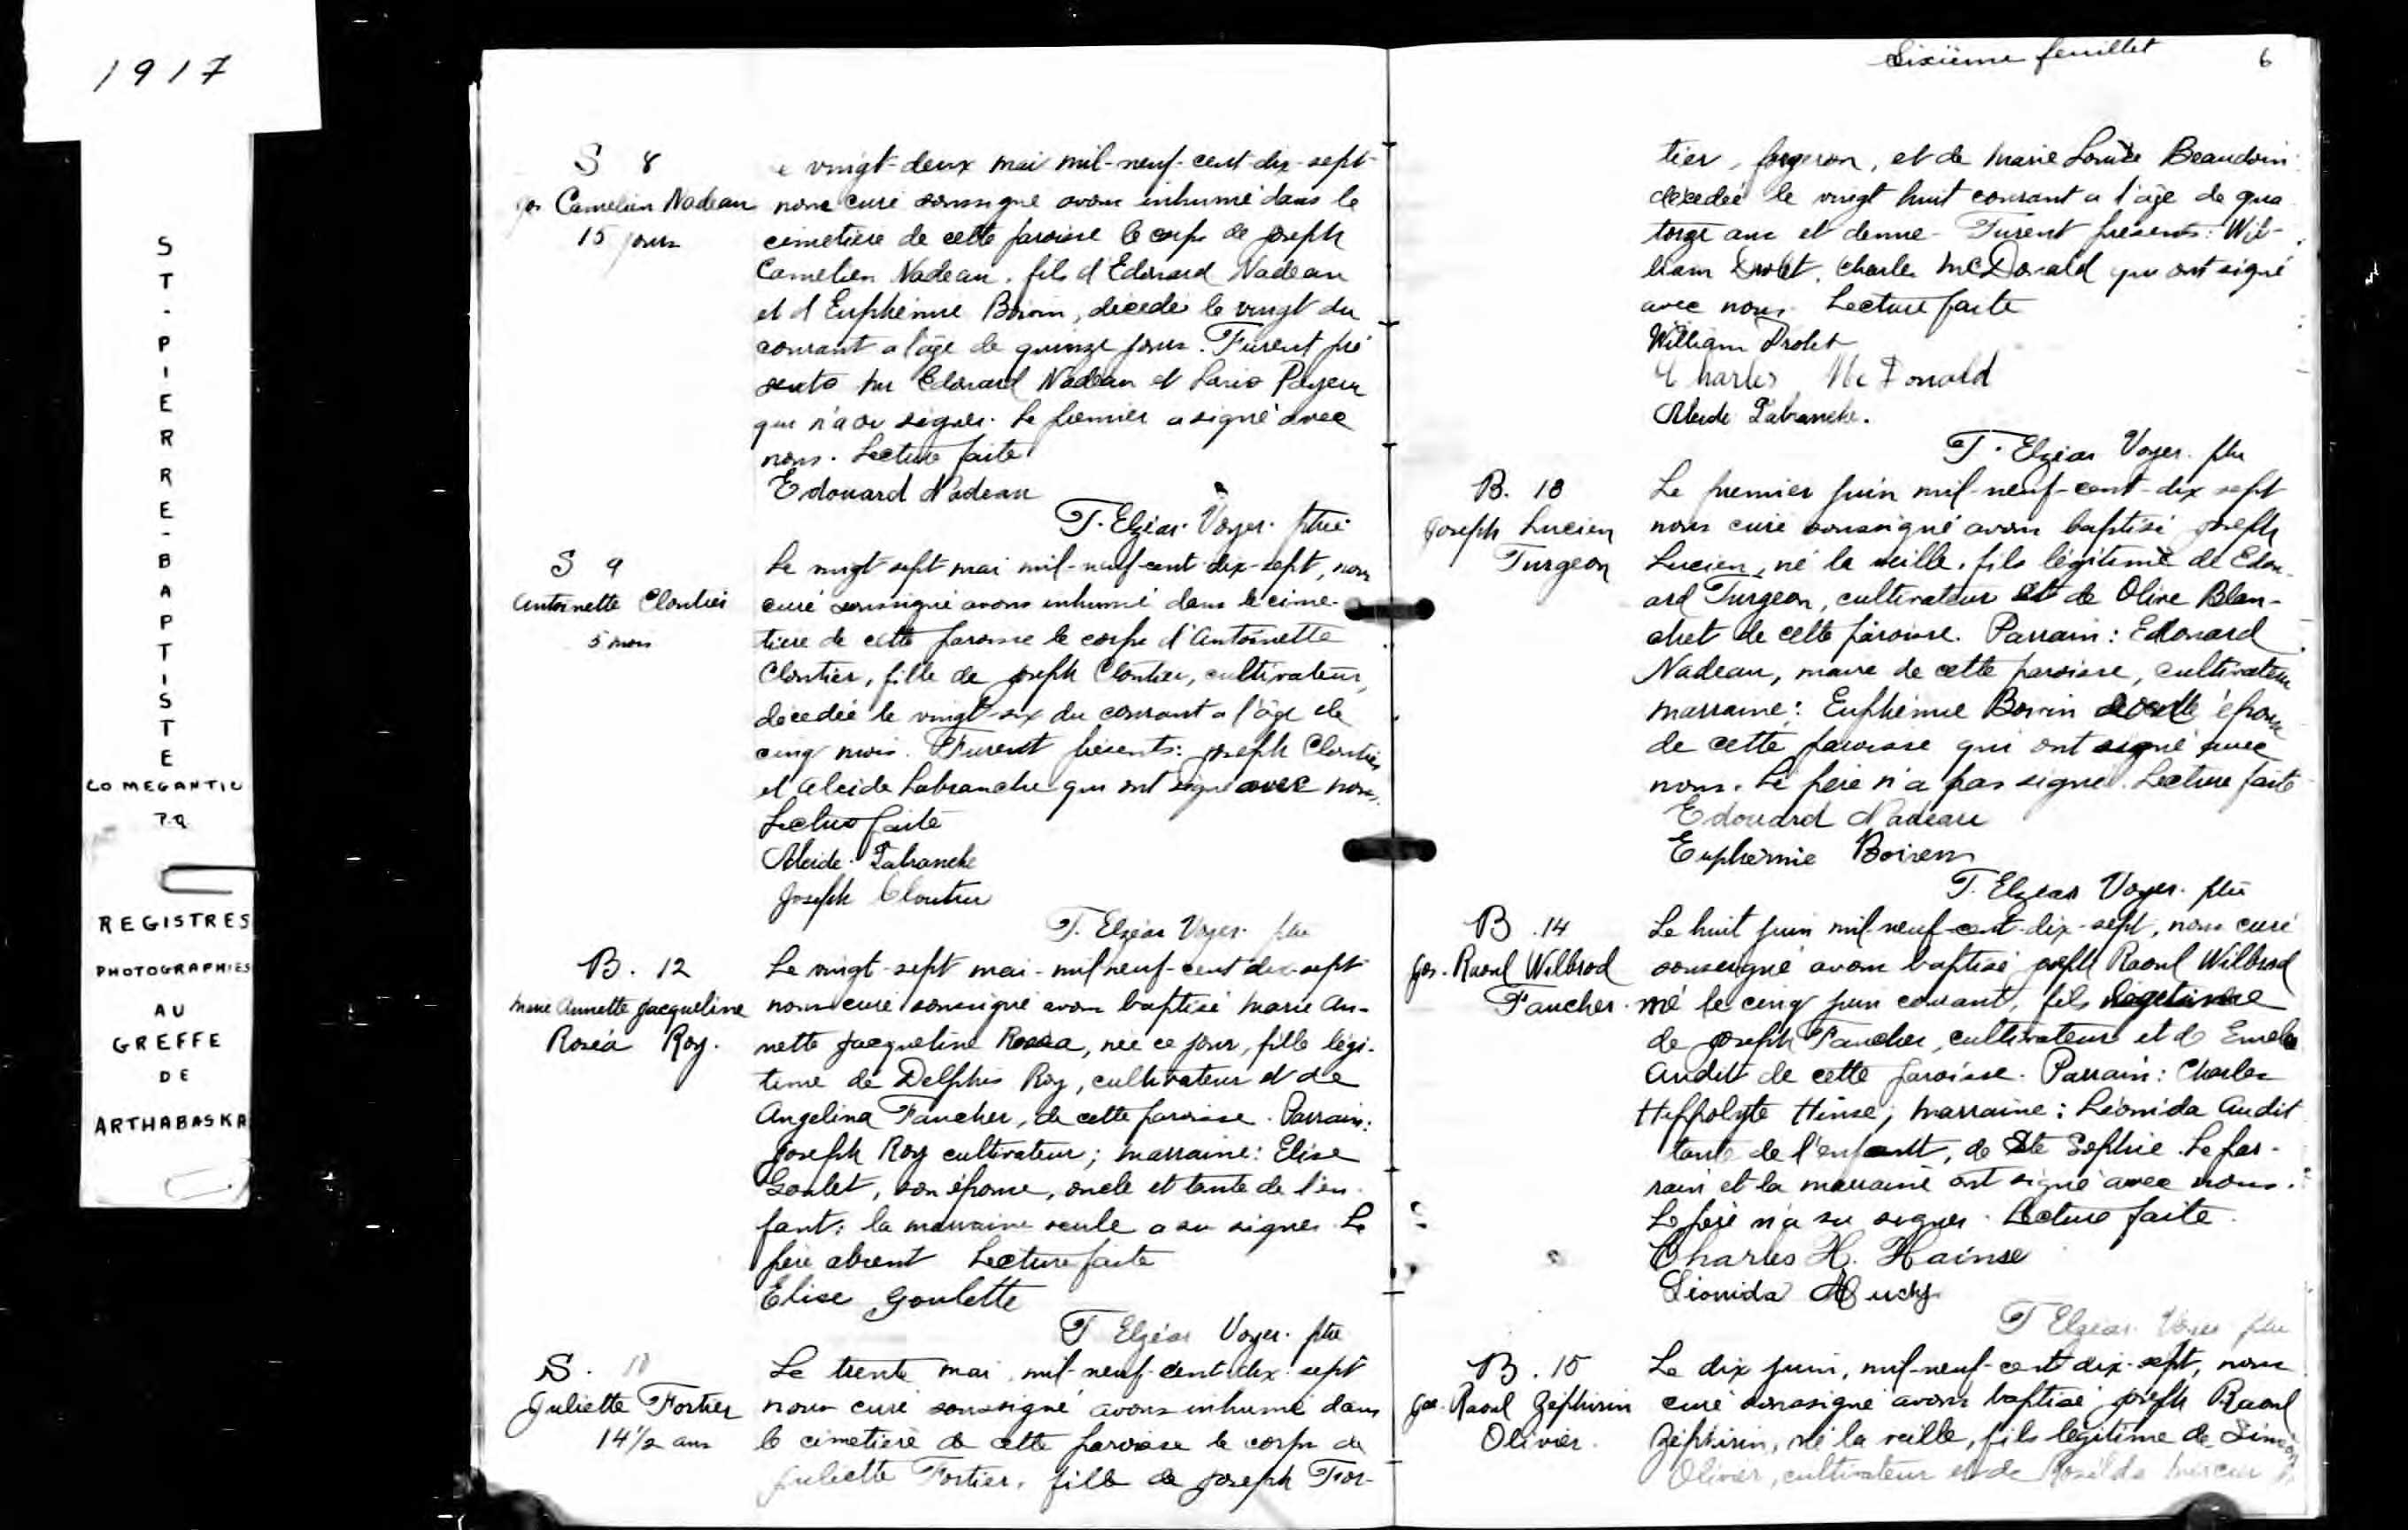 1917
ST-PIERRE-BAPTISTE
CO MEGANTIC
P.Q
REGISTRES
PHOTOGRAPHIES
AU
GREFFE
DE
ARTHABASKA
S 8
Jos Camelien Nadeau
15 jours
vingt-deux mai mil-neuf-cent-dix-sept
nous curé soussigné avons inhumé dans le
cimetière de cette paroisse le corps de Joseph
Camelien Nadeau, fils d'Edouard Nadeau
et d'Euphémie Boivin, décédé le vingt du
courant a l'âge de quinze jours. Furent pré
sents Mr Edouard Nadeau et Payeur
qui n'a su signer. Le premier a signé avec
nous. Lecture faite
Edouard Nadeau
T. Elzéar Voyer. ptre
S 9
Antoinette Cloutier
5 mois
Le vingt sept mai mil-neuf-cent dix-sept, nous
curé soussigné avons inhumé dans le cime-
tière de cette paroisse le corps d'Antoinette
Cloutier, fille de Joseph Cloutier, cultivateur,
décédée le vingt-six du courant a l'âge de
cinq mois. Furent présents: Joseph Cloutier
et Alcide Labranche qui ont signé avec nous.
Lecture faite
Alcide Labranche
Joseph Cloutier
T. Elzéar Voyer. ptre
B. 12
Marie Annette Jacqueline
Roséa Roy.
Le vingt-sept mai-mil neuf-cent dix-sept
nous curé soussigné avons baptisé Marie An-
nette Jacqueline Roséa, née ce jour, fille légi-
time de Delphis Roy, cultivateur et de
Angelina Faucher, de cette paroisse. Parrain:
Joseph Roy cultivateur; marraine: Elise
Goulet, son épouse, oncle et tante de l'en-
fant: la marraine seule a su signer. Le
père absent Lecture faite
Elise Goulette
T Elzéar Voyer. ptre
S. 10
Juliette Fortier
14 1/2 ans
Le trente mai, mil-neuf-cent dix-sept
nous curé soussigné avons inhumé dans
le cimetière de cette paroisse le corps de
Juliette Fortier, fille de Joseph For-
Sixième feuillet 6
tier, forgeron, et de Marie Louise Beaudoin
décédée le vingt huit courant a l'âge de qua
torze ans et demie - Furent présents: Wil-
liam Drolet, Charles McDonald qui ont signé
avec nous. Lecture faite
William Drolet
Charles McDonald
Alcide Labranche.
T. Elzéar Voyer. ptre
B. 13
Joseph Lucien
Turgeon
Le premier juin mil-neuf-cent-dix sept
nous curé soussigné avons baptisé Joseph
Lucien, né la veille, fils légitime de Edou-
ard Turgeon, cultivateur et de Olive Blan-
chet de cette paroisse. Parrain: Edouard
Nadeau, maire de cette paroisse, cultivateur
marraine: Euphémie Boivin épouse
de cette paroisse qui ont signé avec
nous. Le père n'a pas signé. Lecture faite
Edouard Nadeau
Euphémie Boiven
T. Elzéar Voyer. ptre
B. 14
Jos. Raoul Wilbrod
Faucher.
Le huit juin mil neuf-cent-dix-sept, nous curé
soussigné avons baptisé Joseph Raoul Wilbrod
né le cinq juin courant, fils légitime
de Joseph Faucher, cultivateur et d
Audit de cette paroisse. Parrain: Charles
Hippolyte Hinse; marraine: Léonida Audit
tante de l'enfant, de Ste Sophie. Le par-
rain et la marraine ont signé avec nous.
Le père n'a su signer. Lecture faite.
Charles H. Hainse
Léonida
T Elzéar Voyer ptre
B. 15
Jos. Raoul Zéphirin
Olivier.
Le dix juin, mil-neuf-cent dix-sept, nous
curé soussigné avons baptisé Joseph Raoul
Zéphirin, né la veille, fils légitime de Siméon
Olivier, cultivateur et de Rosilda Mercier